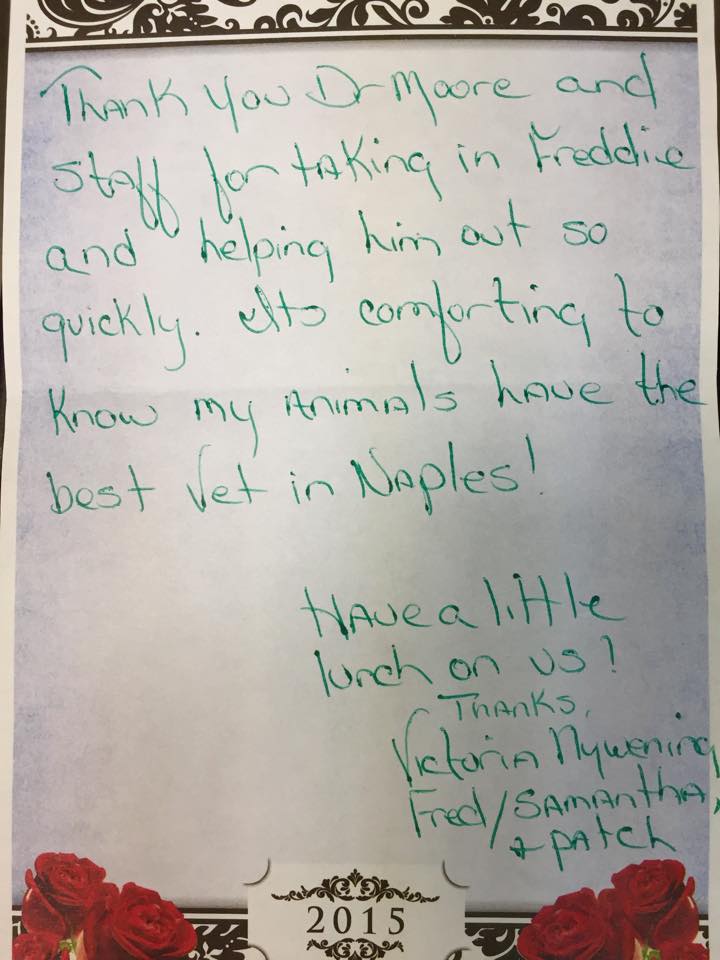 Thank you Dr Moore and
staff for taking in Freddie
and helping him out so
quickly. Its comforting to
know my animals have the
best vet in Naples!
Have a little
lunch on us!
Thanks,
Victoria Nywening
Fred/Samantha,
+ patch
2015